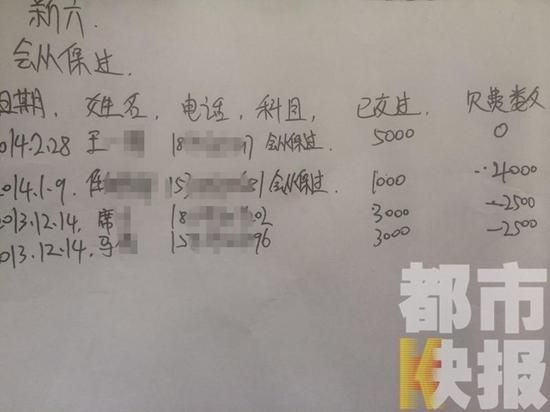 新六.
会从保过.
日期, 姓名, 电话, 科目, 已交过, 欠费数
2014.2.28 王 18 7 会从保过 5000 0
2014.1.9. 任 153 681 会从保过. 1000 -24000
2013.12.14. 席 18 02 3000 -2500
2013.12.14. 马 15 96 3000 -2500
都市
快报